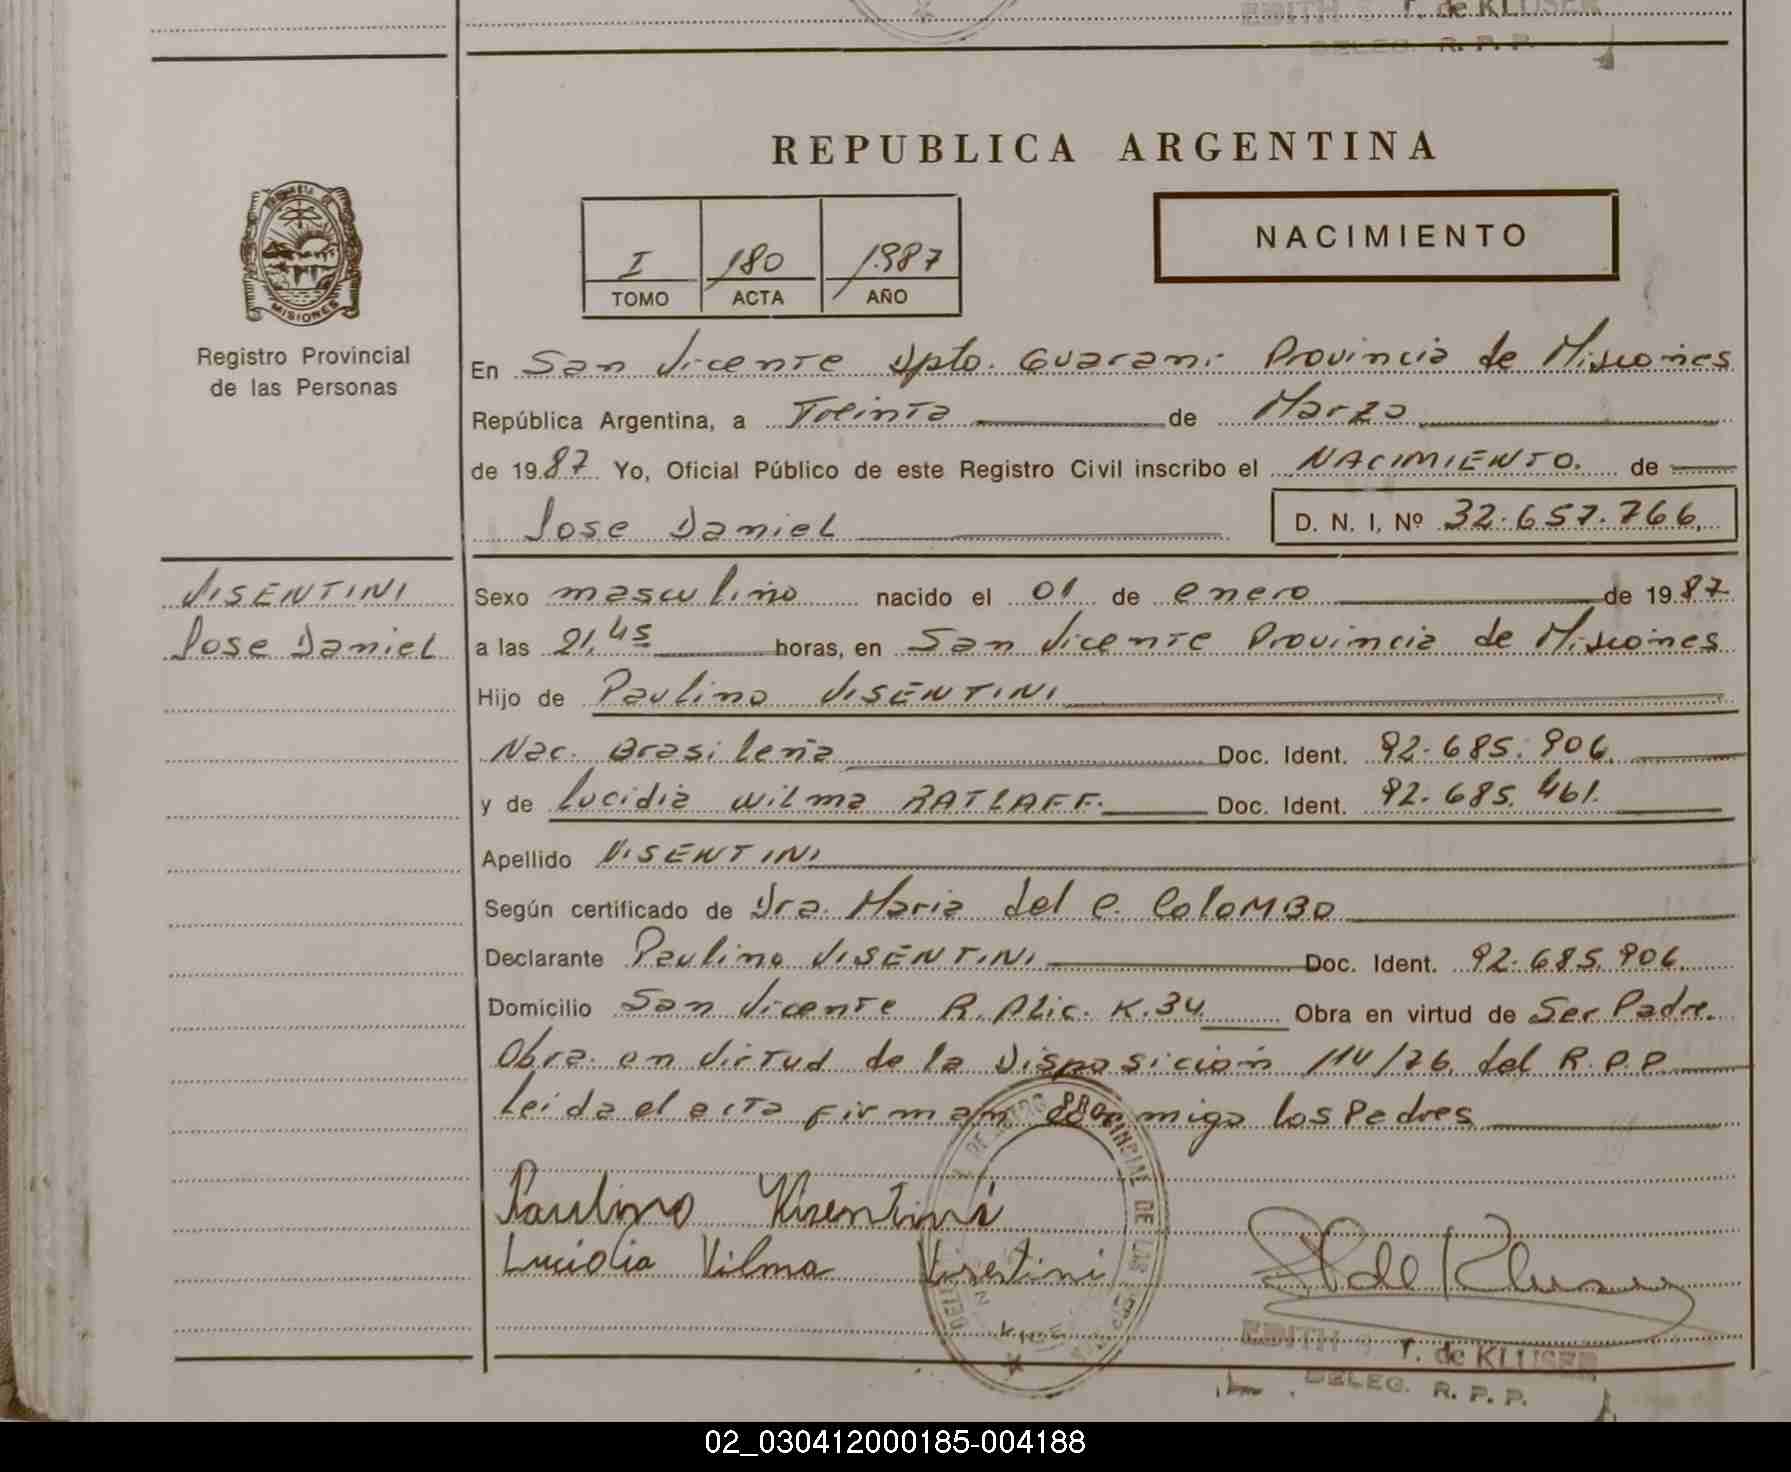 T. de KLUSER
DELEG. R. P. P.
REPUBLICA ARGENTINA
NACIMIENTO
I 180 1987
TOMO ACTA AÑO
MISIONES
Registro Provincial
de las Personas
En San Vicente Dpto. Guarani Provincia de Misiones
República Argentina, a Treinta de Marzo
de 1987 Yo, Oficial Público de este Registro Civil inscribo el NACIMIENTO. de
Jose Daniel D. N. I. Nº 32.657.766
VISENTINI
Jose Daniel
Sexo masculino nacido el 01 de enero de 1987
a las 21,45 horas, en San Vicente Provincia de Misiones
Hijo de Paulino VISENTINI
Nac. Brasileña Doc. Ident. 92.685.906
y de Lucidia Wilma RATLAFF. Doc. Ident. 92.685.461.
Apellido VISENTINI
Según certificado de Dra. Maria del C. COLOMBO
Declarante Paulino VISENTINI Doc. Ident. 92.685.906.
Domicilio San Vicente R. Plic. K.34 Obra en virtud de Ser Padre.
Obra en virtud de la Disposición 114/76 del R.P.P.
Leida el acta firman conmigo los Padres
Paulino Visentini
Lucidia Vilma Visentini
de Kluser
EDITH T. de KLUSER
DELEG. R. P. P.
02_030412000185-004188